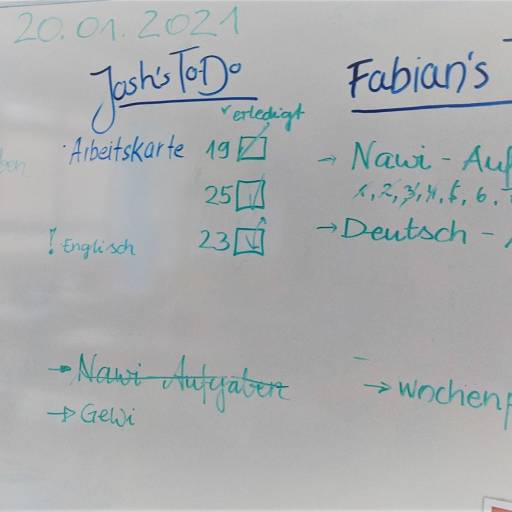 20.01.2021
Josh's ToDo
✓ erledigt
· Arbeitskarte 19
25
! Englisch 23
→ Nawi Aufgaben
→ Gewi
Fabian's
→ Nawi - Auf
1, 2, 3, 4, 5, 6.
→ Deutsch -
→ Wochenp